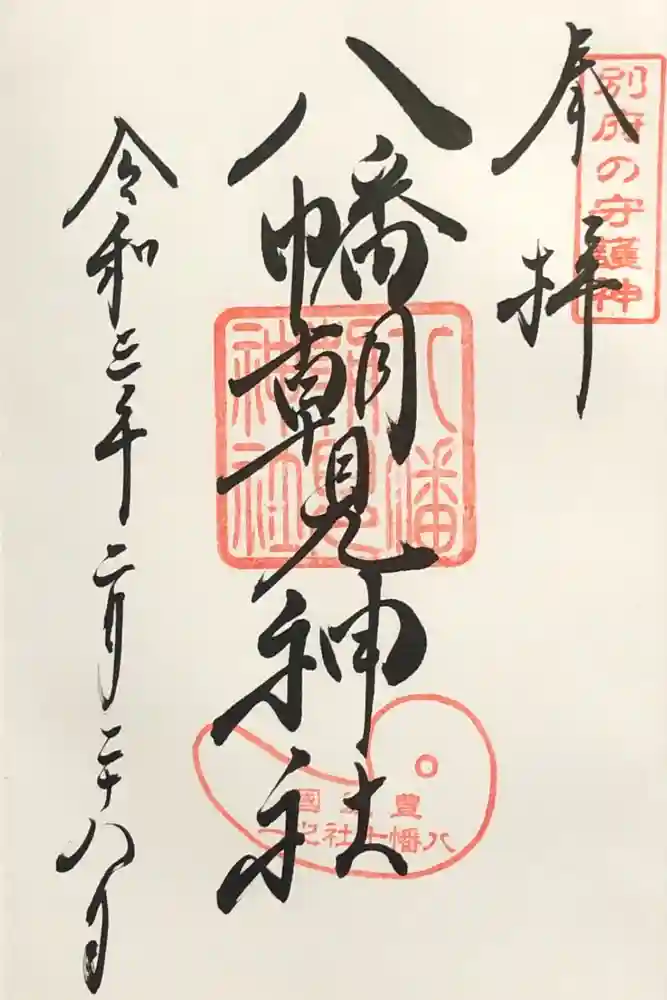 奉拝
別府の守護神
八幡朝見神社
八幡
朝見
神社
豊
國
八幡十社之一
令和三年二月二十八日